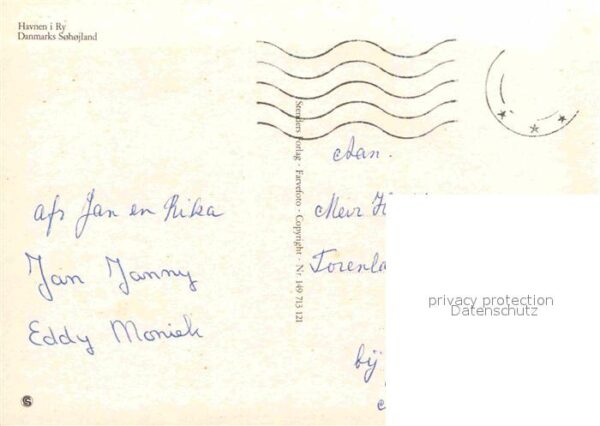 Havnen i Ry
Danmarks Søhøjland
Stenders Forlag - Farvefoto - Copyright - Nr. 149 713 121
afs Jan en Rika
Jan Janny
Eddy Moniek
Aan.
Mevr H
Torenla
privacy protection
Datenschutz
bij